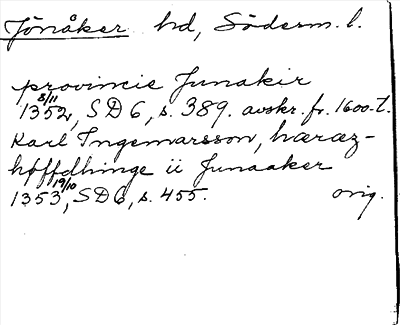 Jönåker hd, Söderm. l.
provincie Junakir
1352 8/11, SD 6, s. 389. avskr. fr. 1600-t.
Karl Ingemarsson, hæraz-
høffdhinge ii Junaaker
1353 19/10, SD 6, s. 455. orig.